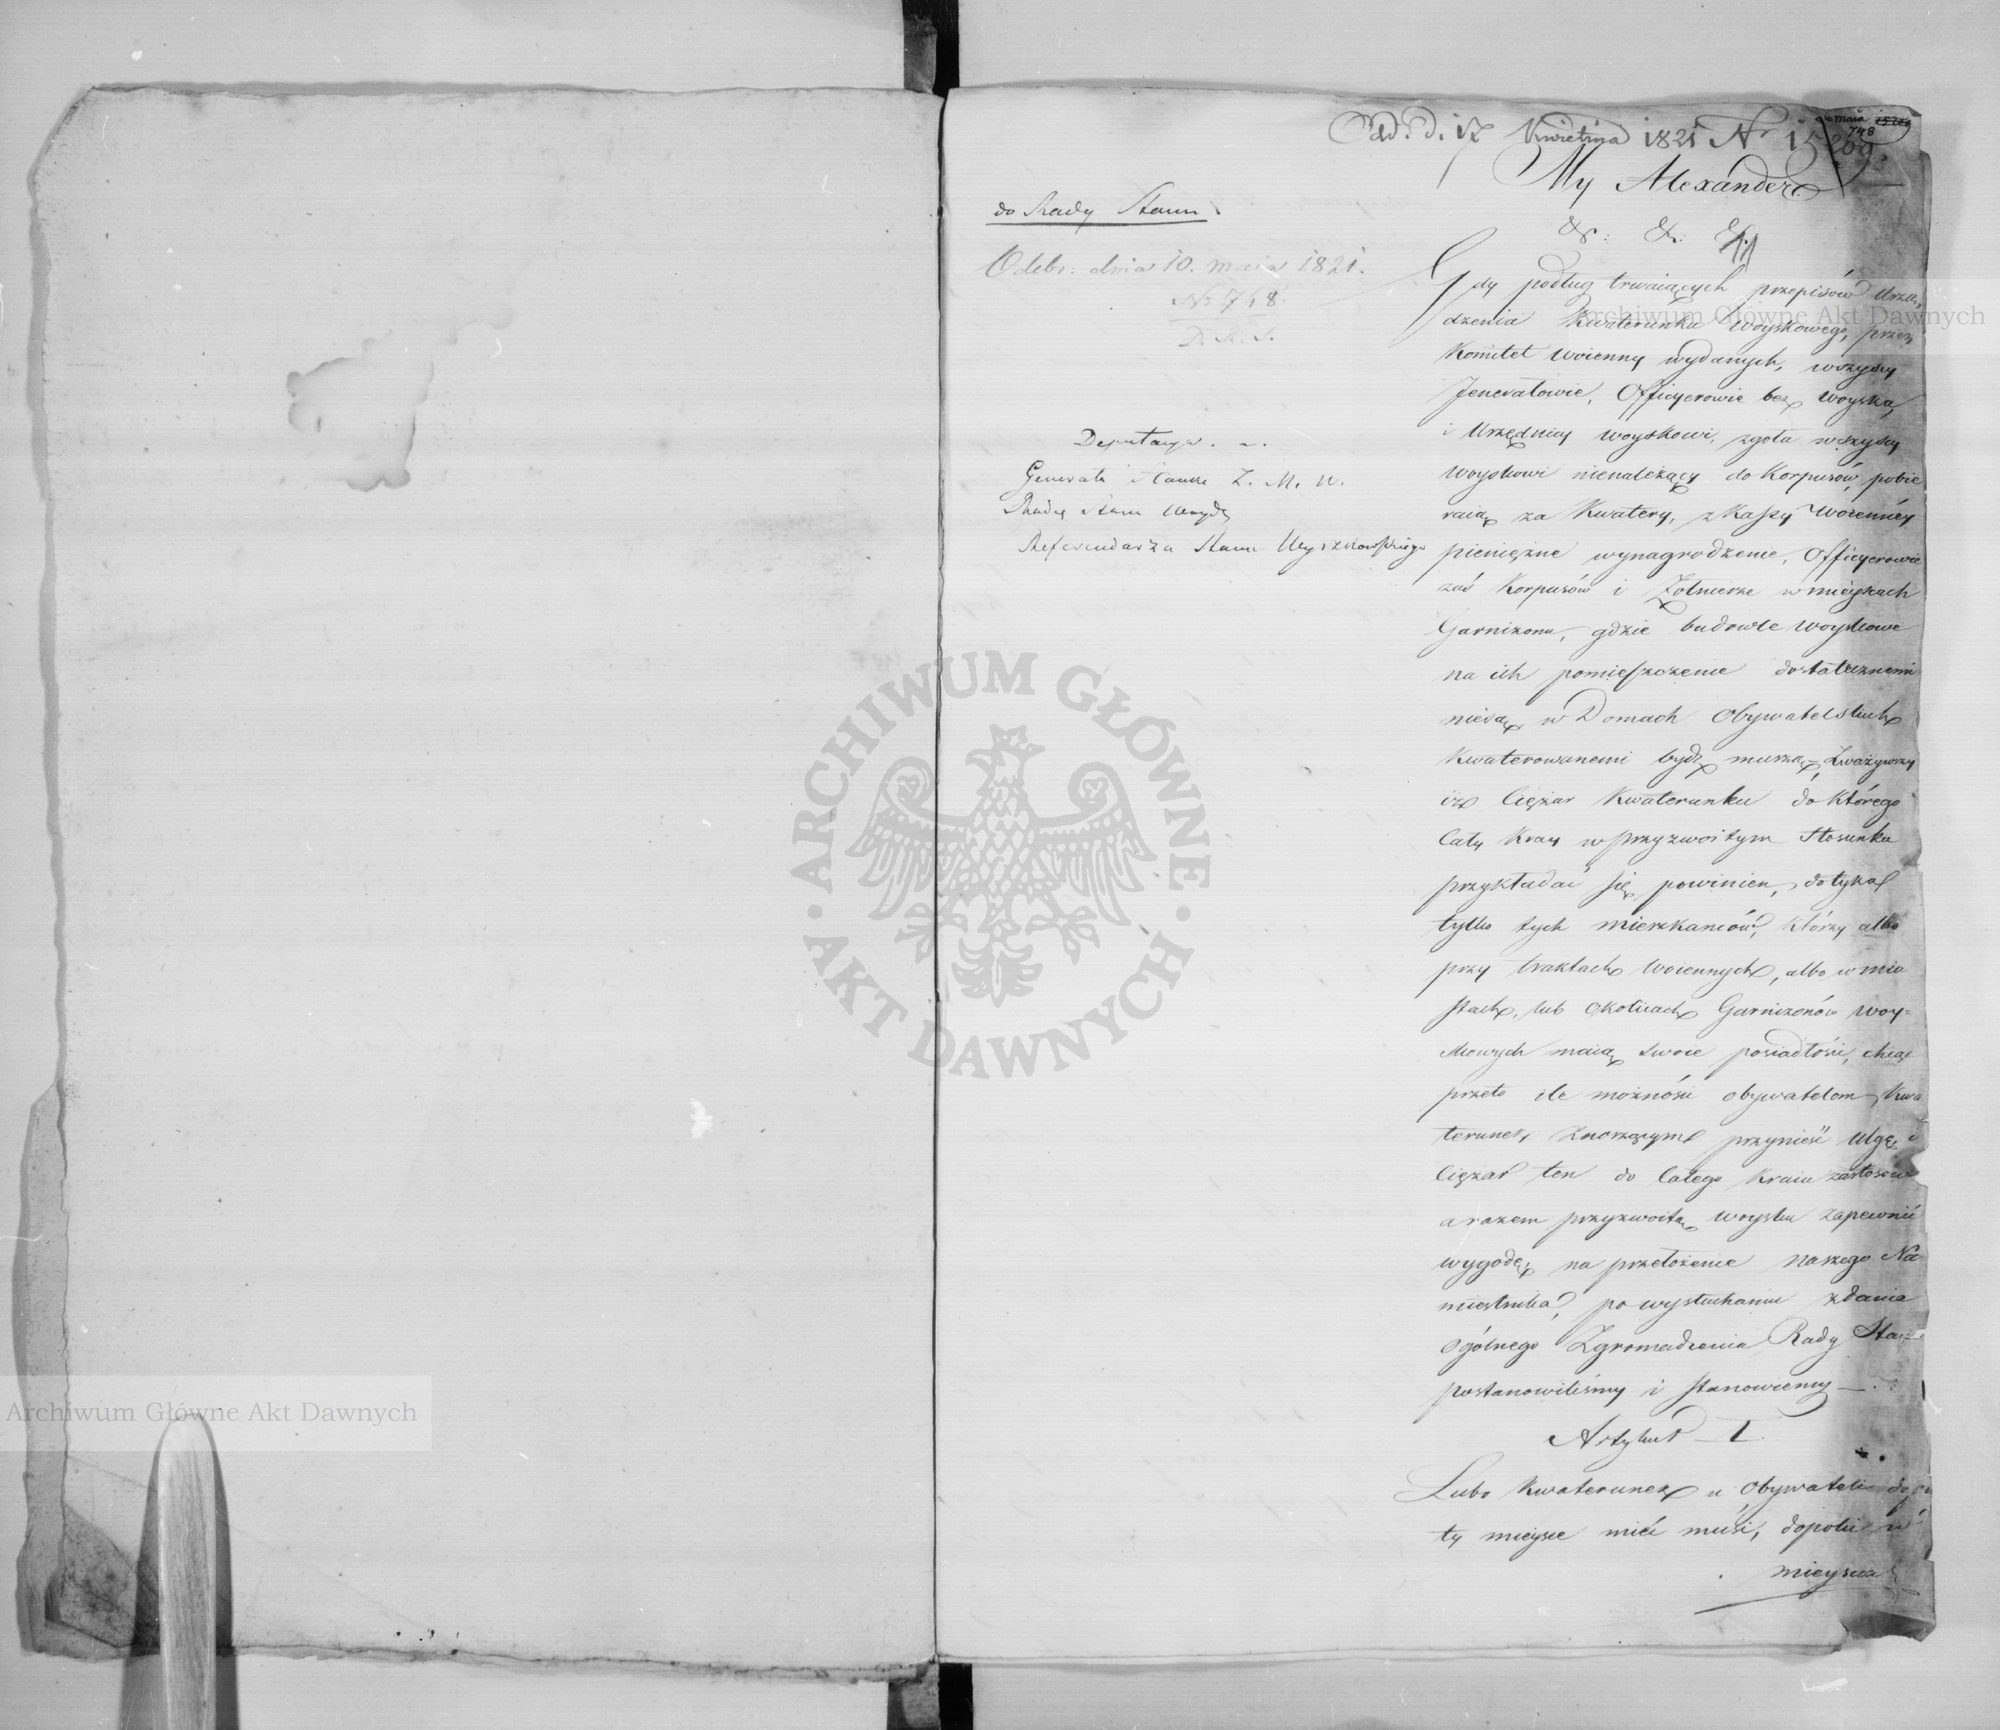 Odd. d. 17 Kwietnia 1821 Nr 15209.
10 maia
748
My Alexander
&: &: &:
do Rady Stanu
Odebr. dnia 10. maia 1821.
No 748
D. R. S.
Deputacya
Generała Hauke Z. M. W.
Radcę Stanu
Referendarza Stanu Wyczechowskiego
Gdy podług trwaiących przepisów Urzą-
dzenia Kwaterunku Woyskowego, przez
Komitet Woienny wydanych, wszyscy
Jenerałowie, Officyerowie bez Woyska,
i Urzędnicy woyskowi, zgoła wszyscy
woyskowi nienależący do Korpusów, pobie
raią za Kwatery, z Kassy Woienney
pieniężne wynagrodzenie, Officyerowie
zaś Korpusów i Żołnierze w mieyscach
Garnizonu, gdzie budowle woyskowe
na ich pomieszczenie dostatecznemi
niesą, w Domach Obywatelskich
Kwaterowanemi bydź muszą, Zważywszy
iż Ciężar Kwaterunku do którego
Cały Kray w przyzwoitym Stosunku
przykładać się powinien, dotykał
tylko tych mieszkańców, którzy albo
przy traktach Woiennych, albo w mia
stach, lub okolicach Garnizonów Woy=
skowych maią swoie posiadłości, chcąc
przeto ile możności obywatelom Kwa
terunek znoszącym przynieść ulgę, i
Ciężar ten do Całego Kraiu zastosować
a razem przyzwoitą Woysku zapewnić
wygodę; na przełożenie Naszego Na
miestnika, po wysłuchaniu zdania
Ogólnego Zgromadzenia Rady Stanu
postanowiliśmy i stanowiemy —
Artykuł I.
Lubo Kwaterunek u Obywateli dopó
ty mieysce mieć musi, dopóki w
mieyscach
Archiwum Główne Akt Dawnych
Archiwum Główne Akt Dawnych
ARCHIWUM GŁÓWNE
AKT DAWNYCH